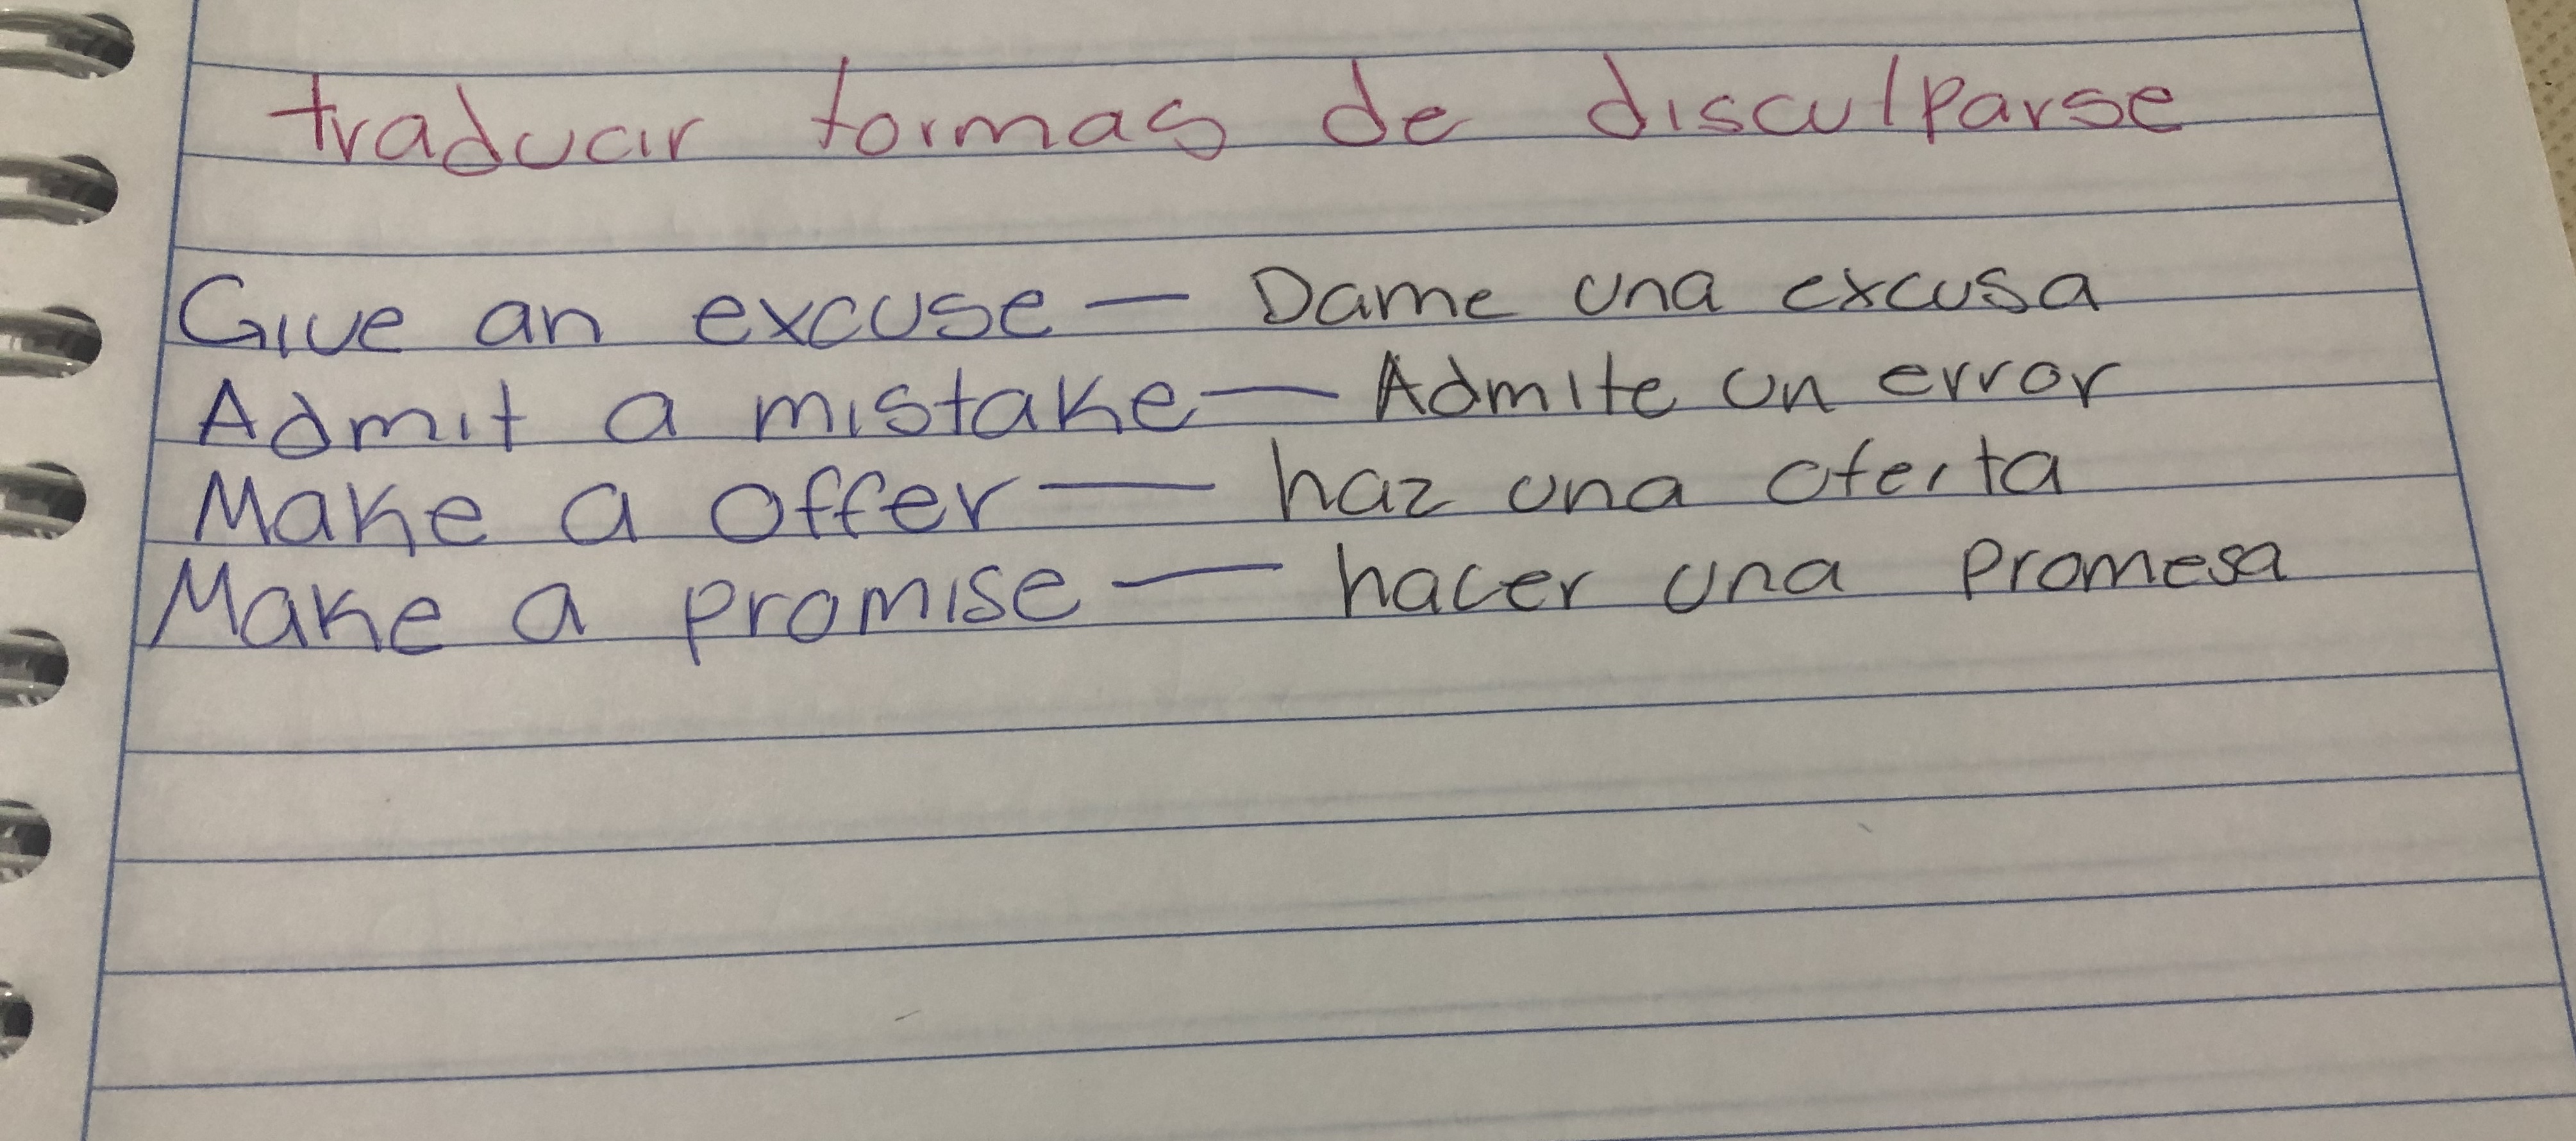 traducir formas de disculparse
Give an excuse — Dame una excusa
Admit a mistake — Admite un error
Make a offer — haz una oferta
Make a promise — hacer una promesa